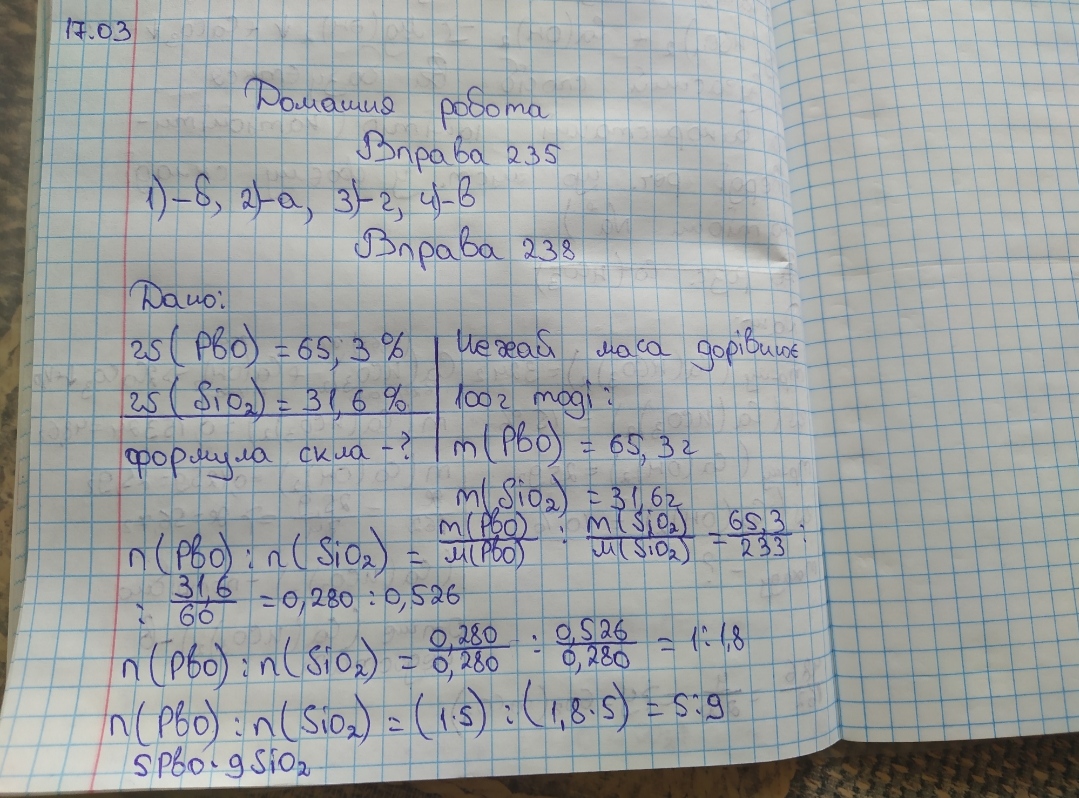 17.03
Домашня робота
Вправа 235
1)-б, 2)-а, 3)-г, 4)-в
Вправа 238
Дано:
W(PbO) = 65,3 %
W(SiO₂) = 31,6 %
формула скла -?
Нехай маса дорівнює
100г тоді:
m(PbO) = 65,3г
m(SiO₂) = 31,6г
n(PbO) : n(SiO₂) = m(PbO)/M(PbO) : m(SiO₂)/M(SiO₂) = 65,3/233 :
: 31,6/60 = 0,280 : 0,526
n(PbO) : n(SiO₂) = 0,280/0,280 : 0,526/0,280 = 1:1,8
n(PbO) : n(SiO₂) = (1·5) : (1,8·5) = 5:9
5PbO·9SiO₂